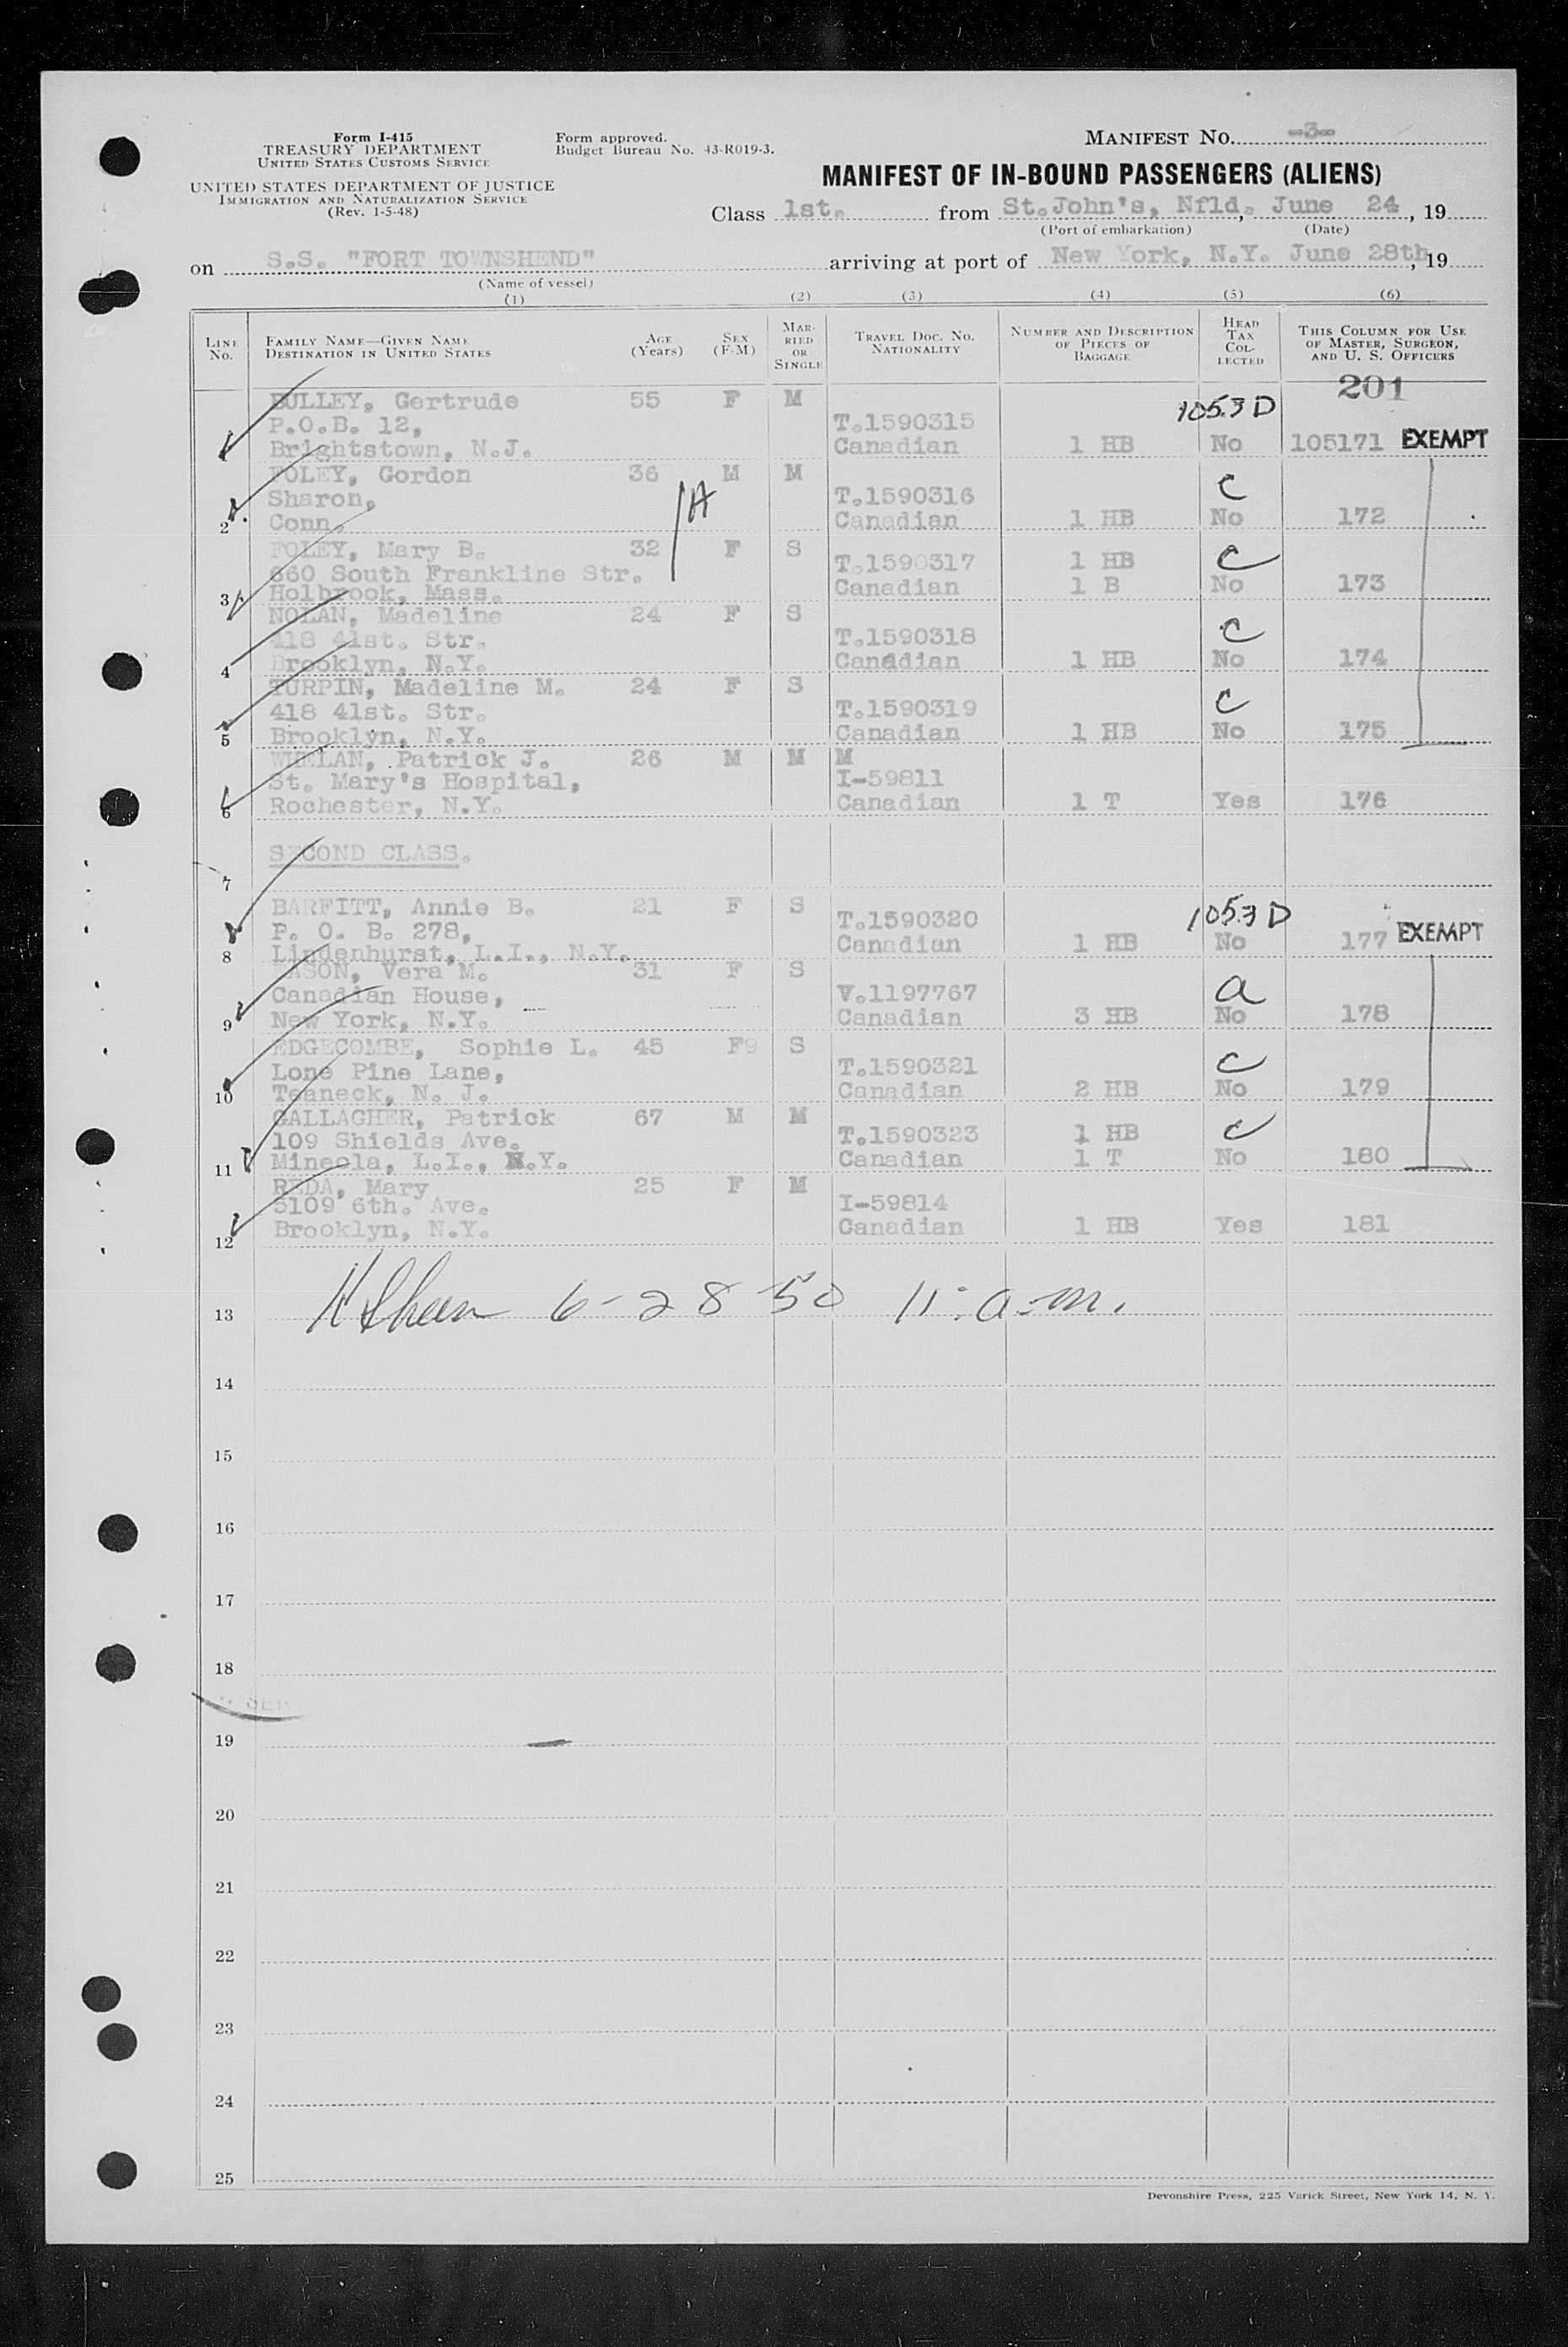 Form I-415
TREASURY DEPARTMENT
UNITED STATES CUSTOMS SERVICE
UNITED STATES DEPARTMENT OF JUSTICE
IMMIGRATION AND NATURALIZATION SERVICE
(Rev. 1-5-48)
Form approved.
Budget Bureau No. 43-R019-3.
MANIFEST NO. -3-
MANIFEST OF IN-BOUND PASSENGERS (ALIENS)
Class 1st. from St.John's, Nfld, June 24, 19
(Port of embarkation) (Date)
on S.S. "FORT TOWNSHEND" arriving at port of New York, N.Y. June 28th, 19
(Name of vessel)
(1) (2) (3) (4) (5) (6)
LINE No.
FAMILY NAME—GIVEN NAME
DESTINATION IN UNITED STATES
AGE (Years)
SEX (F-M)
MARRIED OR SINGLE
TRAVEL DOC. NO. NATIONALITY
NUMBER AND DESCRIPTION OF PIECES OF BAGGAGE
HEAD TAX COLLECTED
THIS COLUMN FOR USE OF MASTER, SURGEON, AND U. S. OFFICERS
201
BULLEY, Gertrude 55 F M 105.3 D
P.O.B. 12, T.1590315
Brightstown, N.J. Canadian 1 HB No 105171 EXEMPT
FOLEY, Gordon 36 M M
Sharon, 1A T.1590316 C
2 Conn. Canadian 1 HB No 172
FOLEY, Mary B. 32 F S
660 South Frankline Str. T.1590317 1 HB C
3 Holbrook, Mass. Canadian 1 B No 173
NOLAN, Madeline 24 F S
418 41st. Str. T.1590318 C
4 Brooklyn, N.Y. Canadian 1 HB No 174
TURPIN, Madeline M. 24 F S
418 41st. Str. T.1590319 C
5 Brooklyn, N.Y. Canadian 1 HB No 175
WHELAN, Patrick J. 26 M M M
St. Mary's Hospital, I-59811
6 Rochester, N.Y. Canadian 1 T Yes 176
SECOND CLASS.
7
BARFITT, Annie B. 21 F S 105.3 D
P. O. B. 278, T.1590320
8 Lindenhurst, L.I., N.Y. Canadian 1 HB No 177 EXEMPT
EASON, Vera M. 31 F S
Canadian House, V.1197767 a
9 New York, N.Y. Canadian 3 HB No 178
EDGECOMBE, Sophie L. 45 F9 S
Lone Pine Lane, T.1590321 C
10 Teaneck, N. J. Canadian 2 HB No 179
GALLAGHER, Patrick 67 M M
109 Shields Ave. T.1590323 1 HB C
11 Mineola, L.I., N.Y. Canadian 1 T No 180
REDA, Mary 25 F M
5109 6th. Ave. I-59814
12 Brooklyn, N.Y. Canadian 1 HB Yes 181
13 6-28-50 11: a.m.
14
15
16
17
18
19
20
21
22
23
24
25
Devonshire Press, 225 Varick Street, New York 14, N. Y.